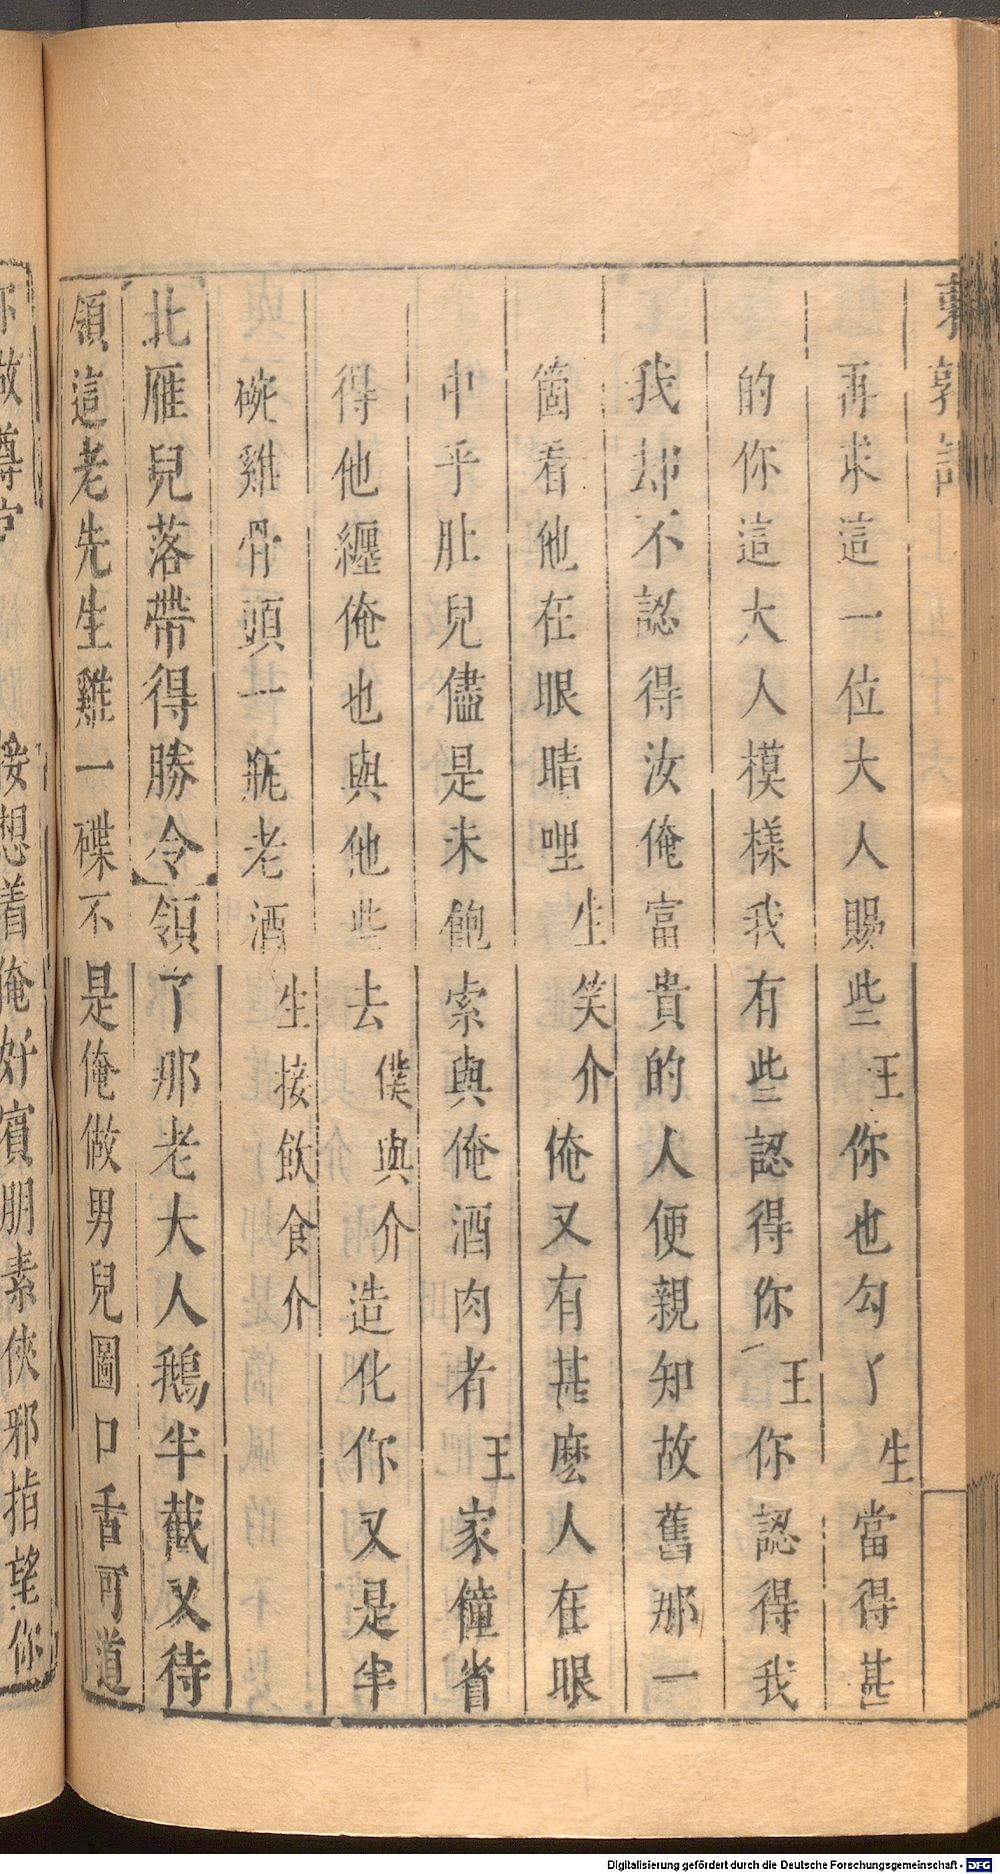 東郭記
再求這一位大人賜些王你也勾了生當得甚
的你這大人模樣我有些認得你王你認得我
我却不認得汝俺富貴的人便親知故舊那一
箇看他在眼睛哩生笑介俺又有甚麼人在眼
中乎肚兒儘是未飽索與俺酒肉者王家僮省
得他纏俺也與他些去僕與介造化你又是半
碗雞骨頭一瓶老酒生接飲食介
北雁兒落帶得勝令領了那老大人鵝半截又待
領這老先生雞一碟不是俺做男兒圖口舌可道
接想着俺好賓朋素俠邪指望你
Digitalisierung gefördert durch die Deutsche Forschungsgemeinschaft - DFG